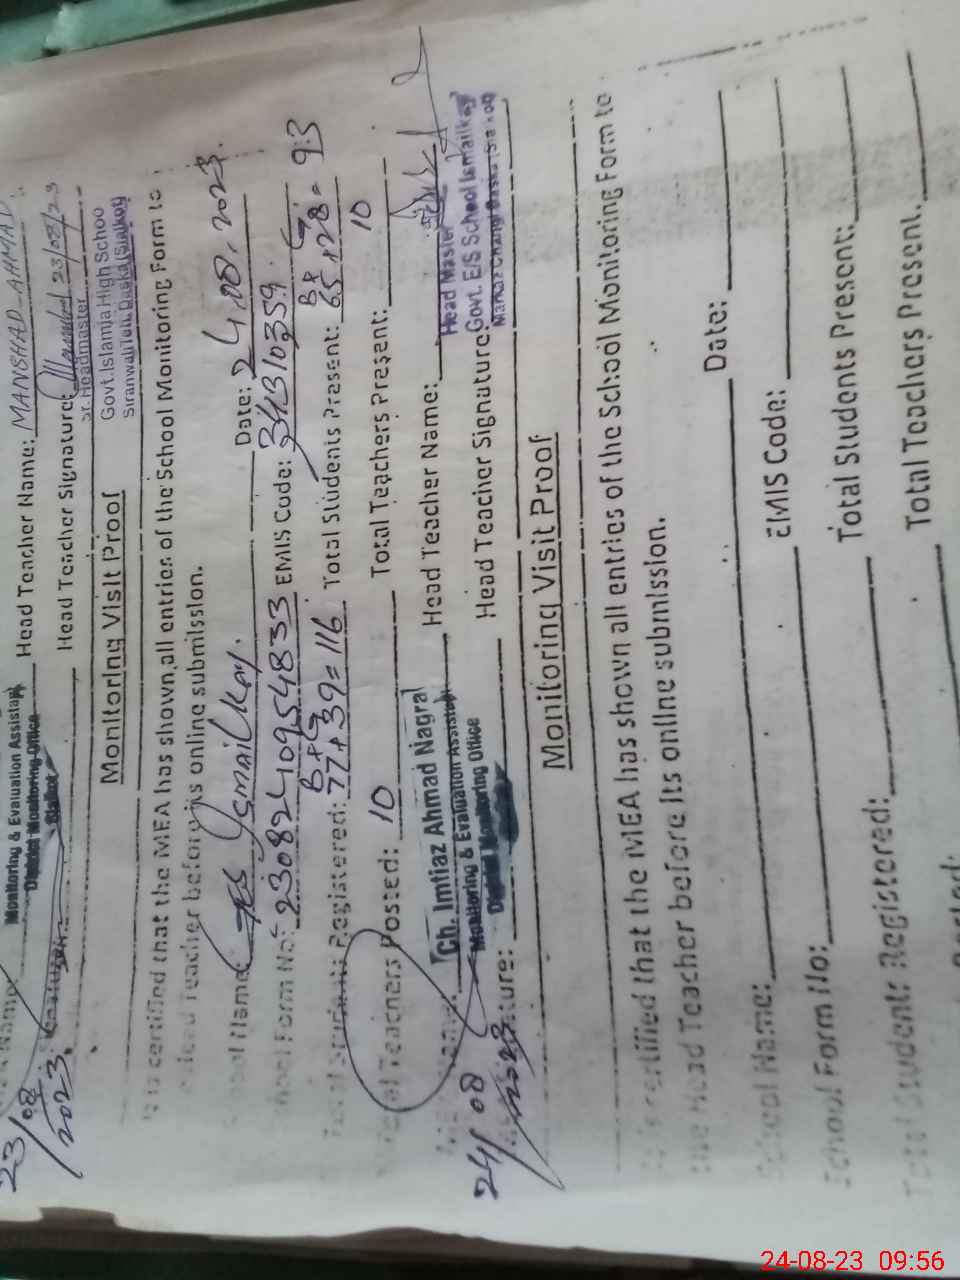 Monitoring & Evaluation Assistant Head Teacher Name: MANSHAD AHMAD
District Monitoring Office
Sialkot Head Teacher Signature: 23/08/23
23/08/2023.
Sr. Headmaster
Govt. Islamia High Schoo
Siranwali Teh. Daska (Sialkot)
Monitoring Visit Proof
is certified that the MEA has shown all entries of the School Monitoring Form to
Teacher before its online submission.
Name: GES Ismailkay. Date: 24.08.2023.
Form No: 230824109548 33 EMIS Code: 34310359.
B + G B + G
Registered: 77+39=116 Total Students Present: 65+28=93
Teachers Posted: 10 Total Teachers Present: 10
Ch. Imtiaz Ahmad Nagra Head Teacher Name:
Monitoring & Evaluation Assistant
District Monitoring Office Head Teacher Signature:
24/08/2023
Head Master
Govt. E/S School Ismailkay
Markaz Daska
Monitoring Visit Proof
certified that the MEA has shown all entries of the School Monitoring Form to
the Head Teacher before its online submission.
School Name: Date:
School Form No: EMIS Code:
Total Students Registered: Total Students Present:
Total Teachers Present.
24-08-23 09:56